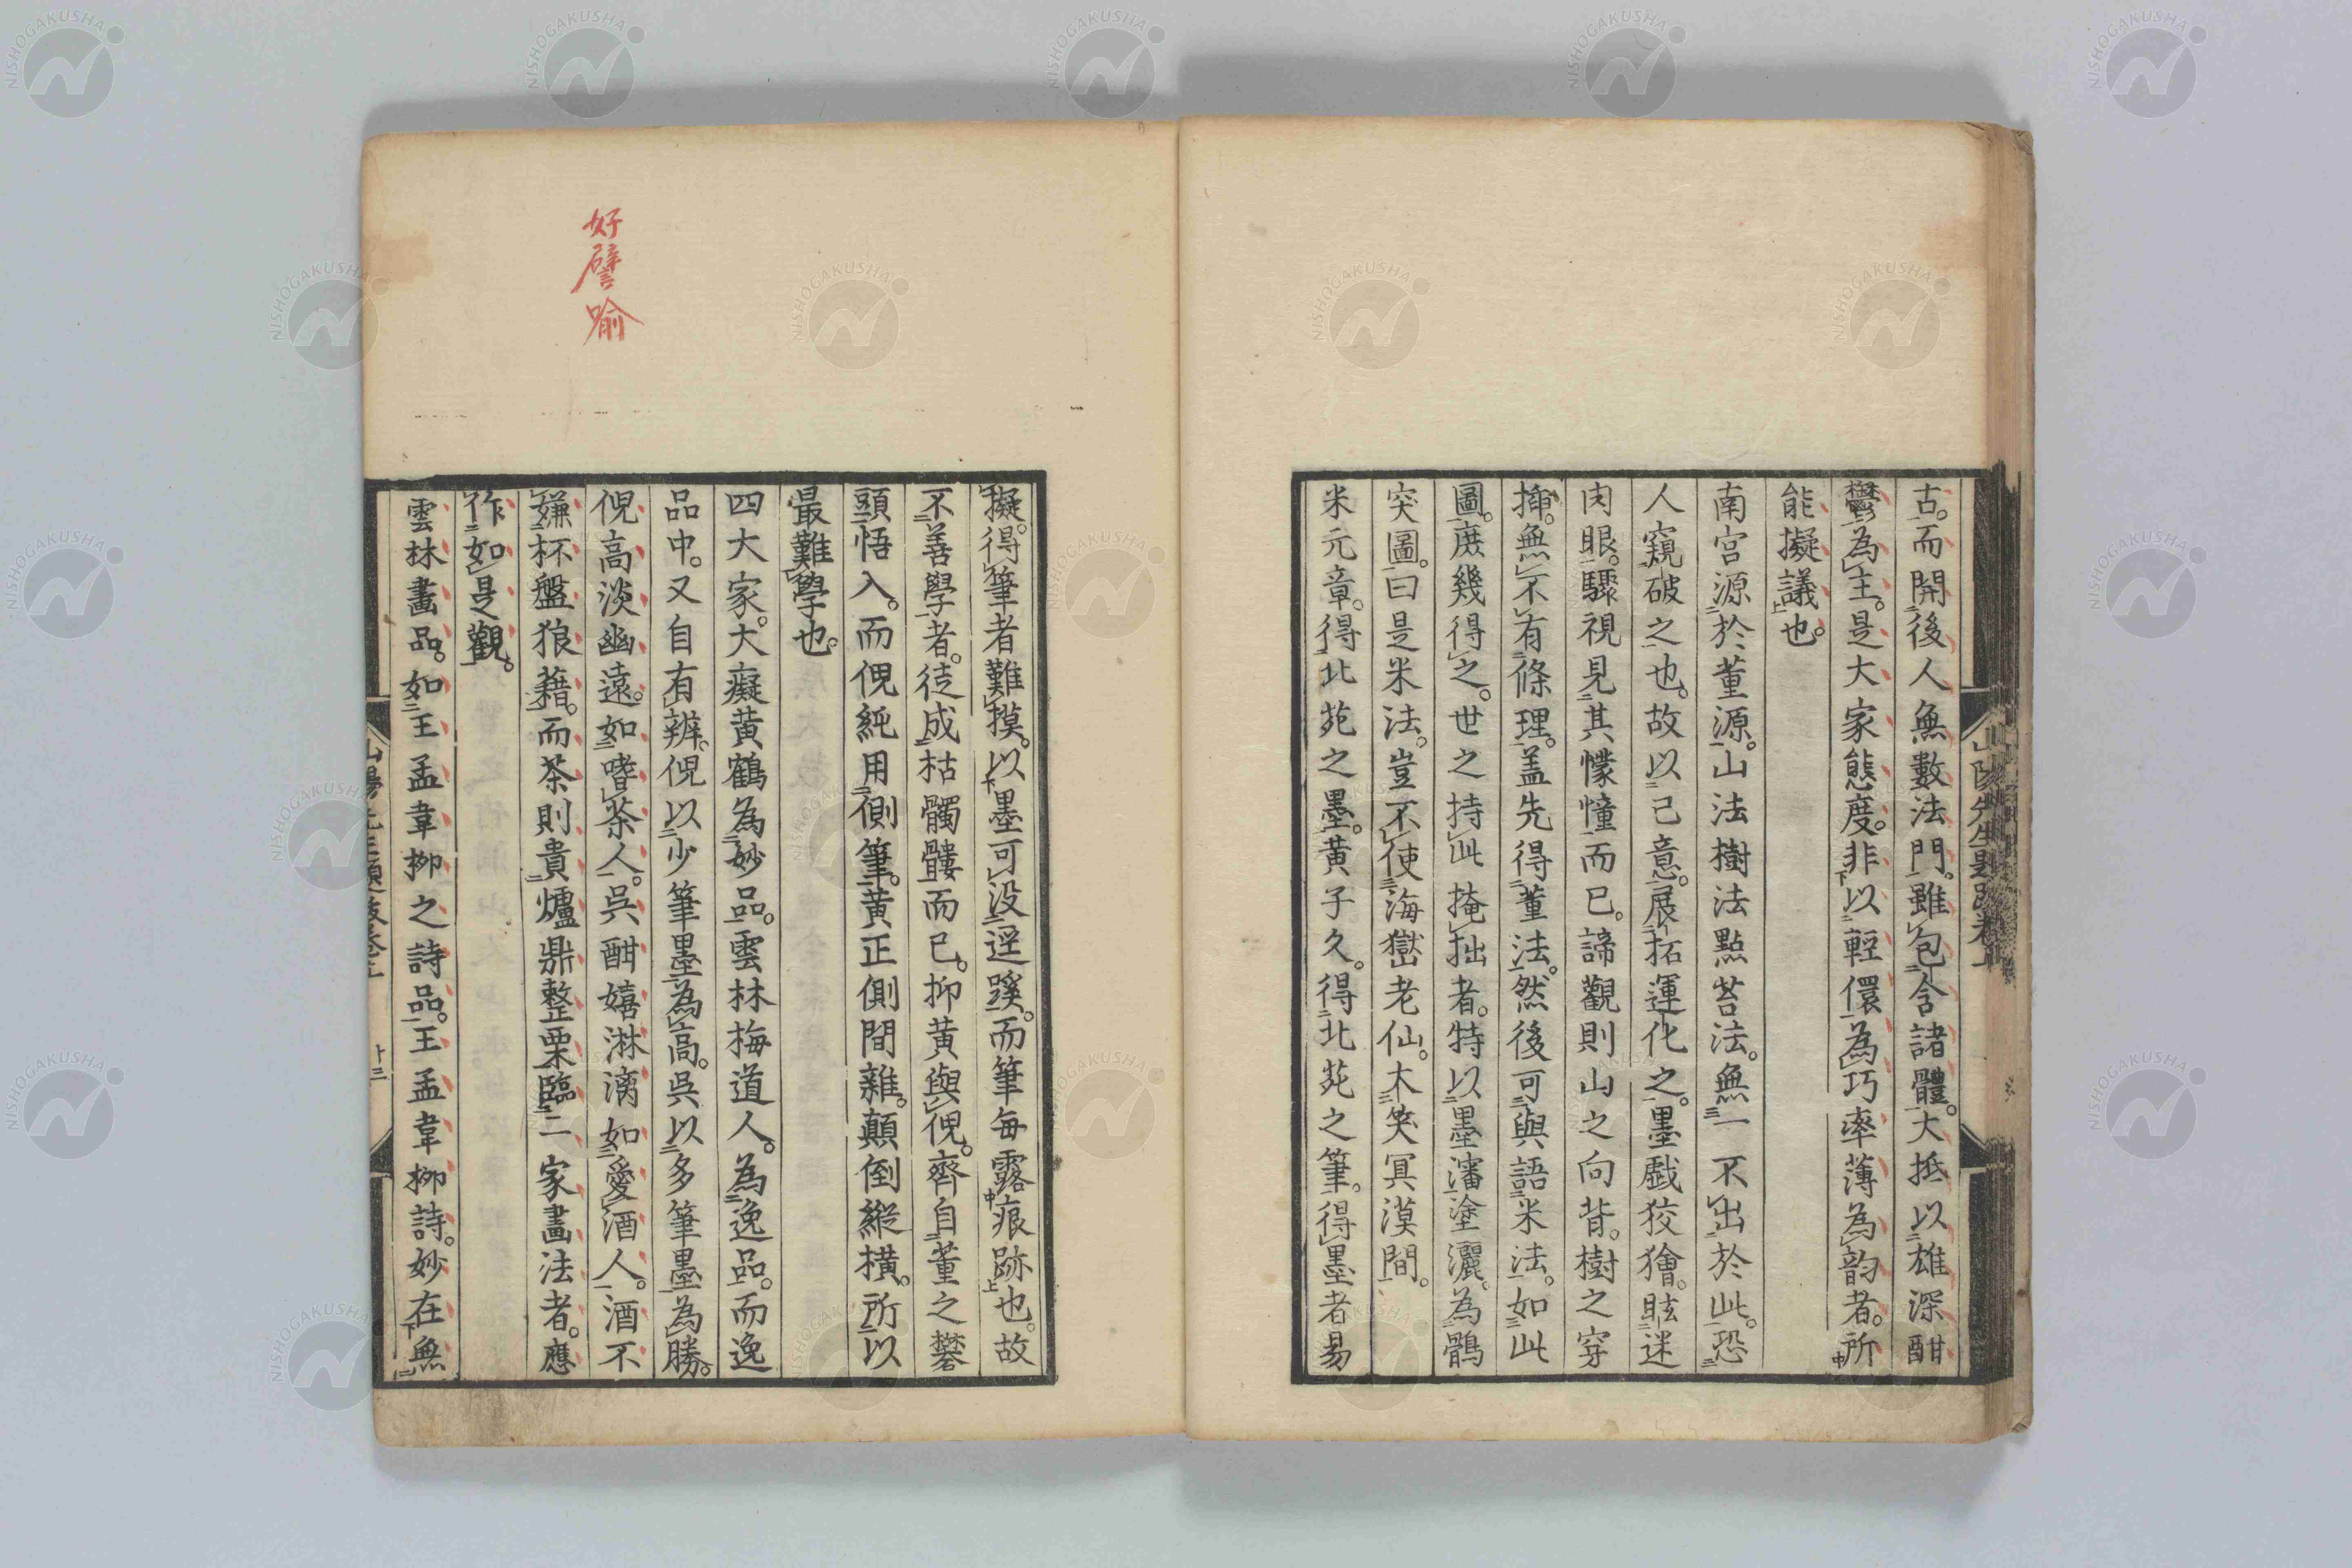 古。而開後人無數法門。雖包含諸體。大抵以雄深酣
鬱為主。是大家態度。非以輕儇為巧率薄為韵者。所
能擬議也。
南宮源於董源。山法樹法點苔法。無一不出於此。恐
人窺破之也。故以己意。展拓運化之。墨戲狡獪。眩迷
肉眼。驟視見其懞憧而已。諦觀則山之向背。樹之穿
揷。無不有條理。盖先得董法。然後可與語米法。如此
圖。庶幾得之。世之持此掩拙者。特以墨瀋塗灑。為鶻
突圖。曰是米法。豈不使海嶽老仙。大笑冥漠間。
米元章。得北苑之墨。黃子久。得北苑之筆。得墨者易
擬。得筆者難摸。以墨可没逕蹊。而筆每露痕跡也。故
不善學者。徒成枯髑髏而已。抑黃與倪。齊自董之礬
頭悟入。而倪純用側筆。黃正側間雜。顛倒縱橫。所以
最難學也。
四大家。大癡黃鶴為妙品。雲林梅道人。為逸品。而逸
品中。又自有辨。倪以少筆墨為高。吳以多筆墨為勝。
倪高淡幽遠。如嗜茶人。吳酣嬉淋漓如愛酒人。酒不
嫌杯盤狼藉。而茶則貴爐鼎整栗。臨二家畫法者。應
作如是觀。
雲林畫品。如王孟韋柳之詩品。王孟韋柳詩。妙在無
好譬喻
山陽先生題跋卷上
十三
NISHOGAKUSHA